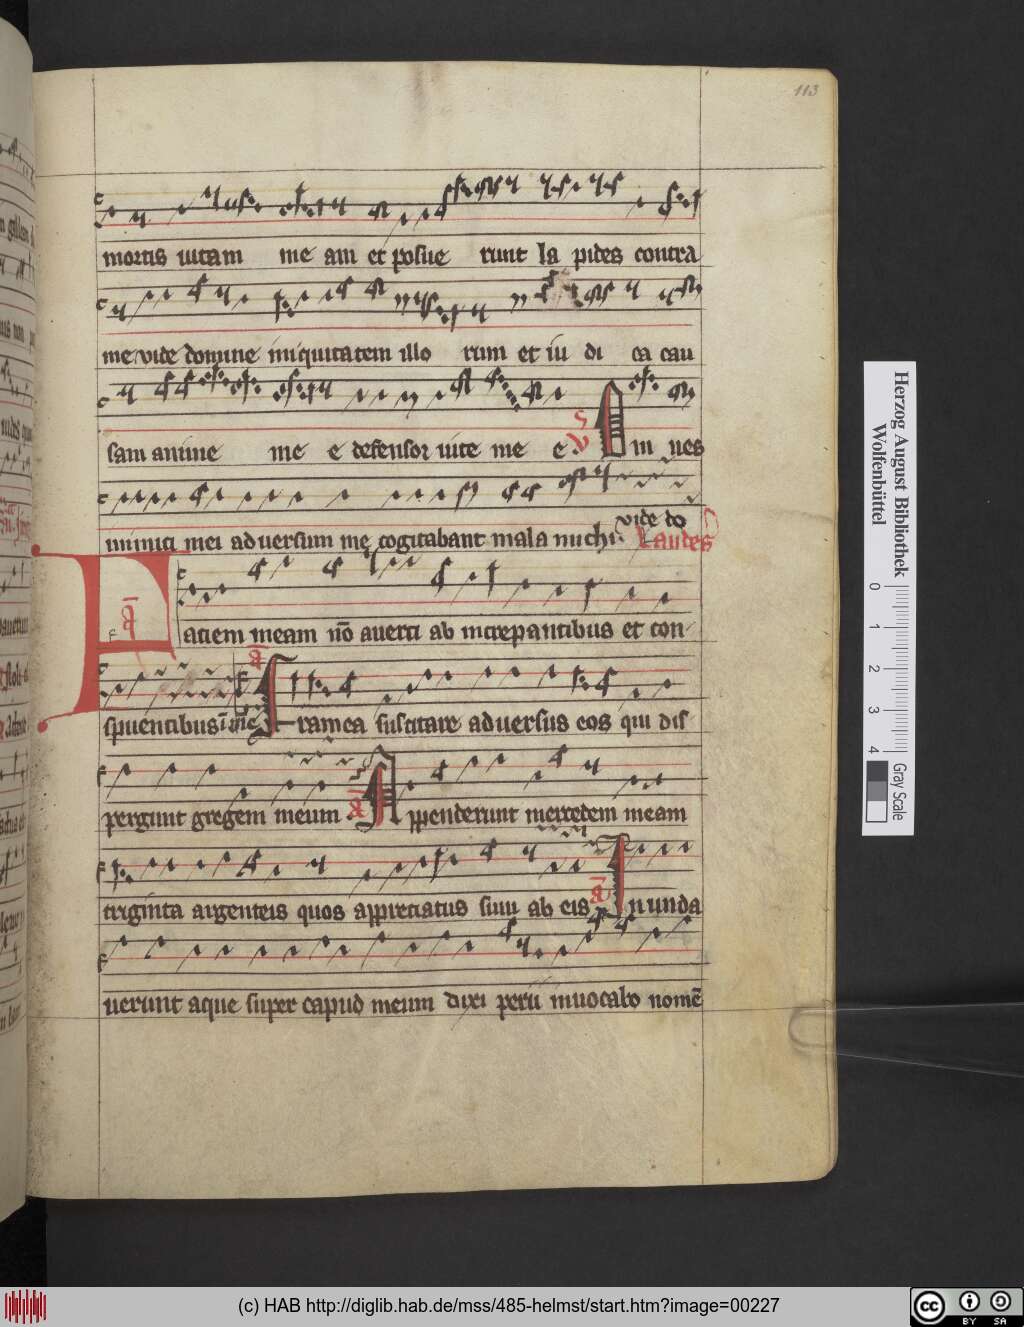 113
mortis uitam me am et posue runt la pides contra
me vide domine iniquitatem illo rum et iu di ca cau
sam anime me e defensor uite me e ℣ Om nes
vide do
inimici mei aduersum me cogitabant mala michi. Laudes
Faciem meam nō auerti ab increpantibus et con
spuentibus ī mē a Framea suscitare aduersus eos qui dis
pergunt gregem meum a Appenderunt mercedem meam
triginta argenteis quos appreciatus sum ab eis a Inunda
uerunt aque super capud meum dixi perii inuocabo nomē
Herzog August Bibliothek
Wolfenbüttel
0 1 2 3 4
Gray Scale
(c) HAB http://diglib.hab.de/mss/485-helmst/start.htm?image=00227
cc BY SA